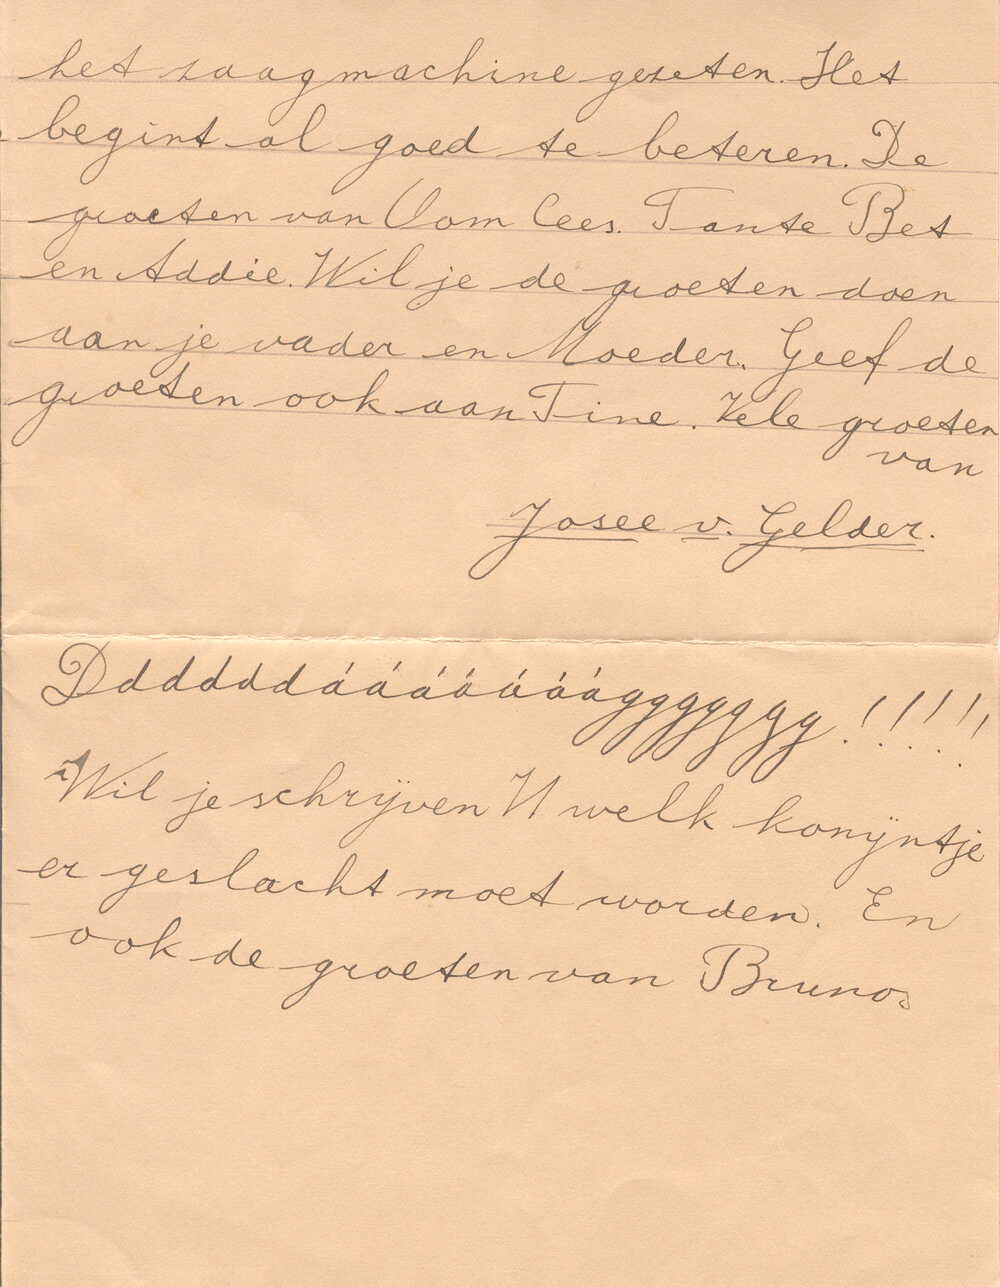 het zaagmachine gezeten. Het
begint al goed te beteren. De
groeten van Oom Cees. Tante Bet
en Addie. Wil je de groeten doen
aan je vader en Moeder. Geef de
groeten ook aan Tine. Vele groeten
van
Josee v. Gelder.
Ddddddááááááággggggg!!!!!
Wil je schrijven welk konijntje
er geslacht moet worden. En
ook de groeten van Bruno.